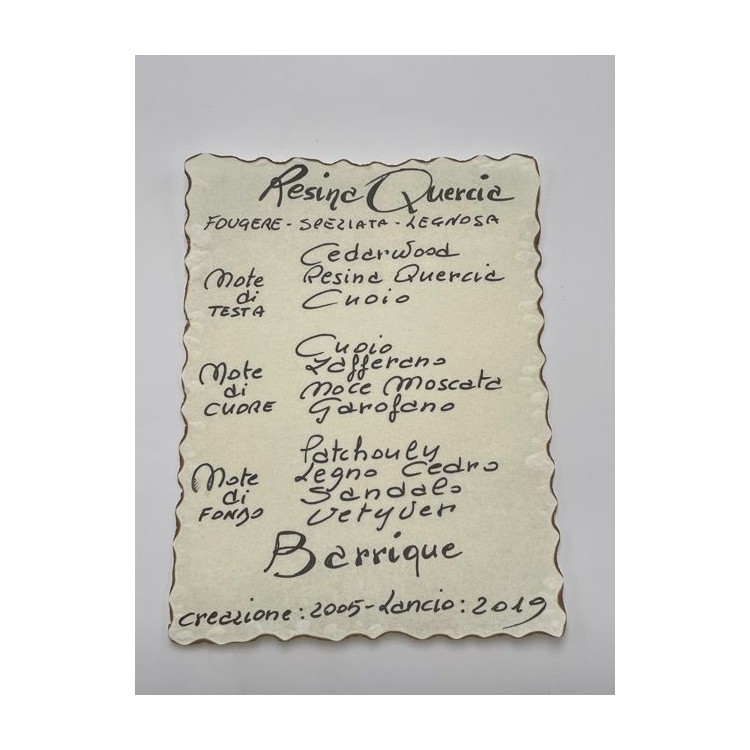 Resina Quercia
FOUGERE - SPEZIATA - LEGNOSA
Note di TESTA
Cedarwood
Resina Quercia
Cuoio
Note di CUORE
Cuoio
Zafferano
Noce Moscata
Garofano
Note di FONDO
Patchouly
Legno Cedro
Sandalo
Vetyver
Barrique
Creazione: 2005 - Lancio: 2019